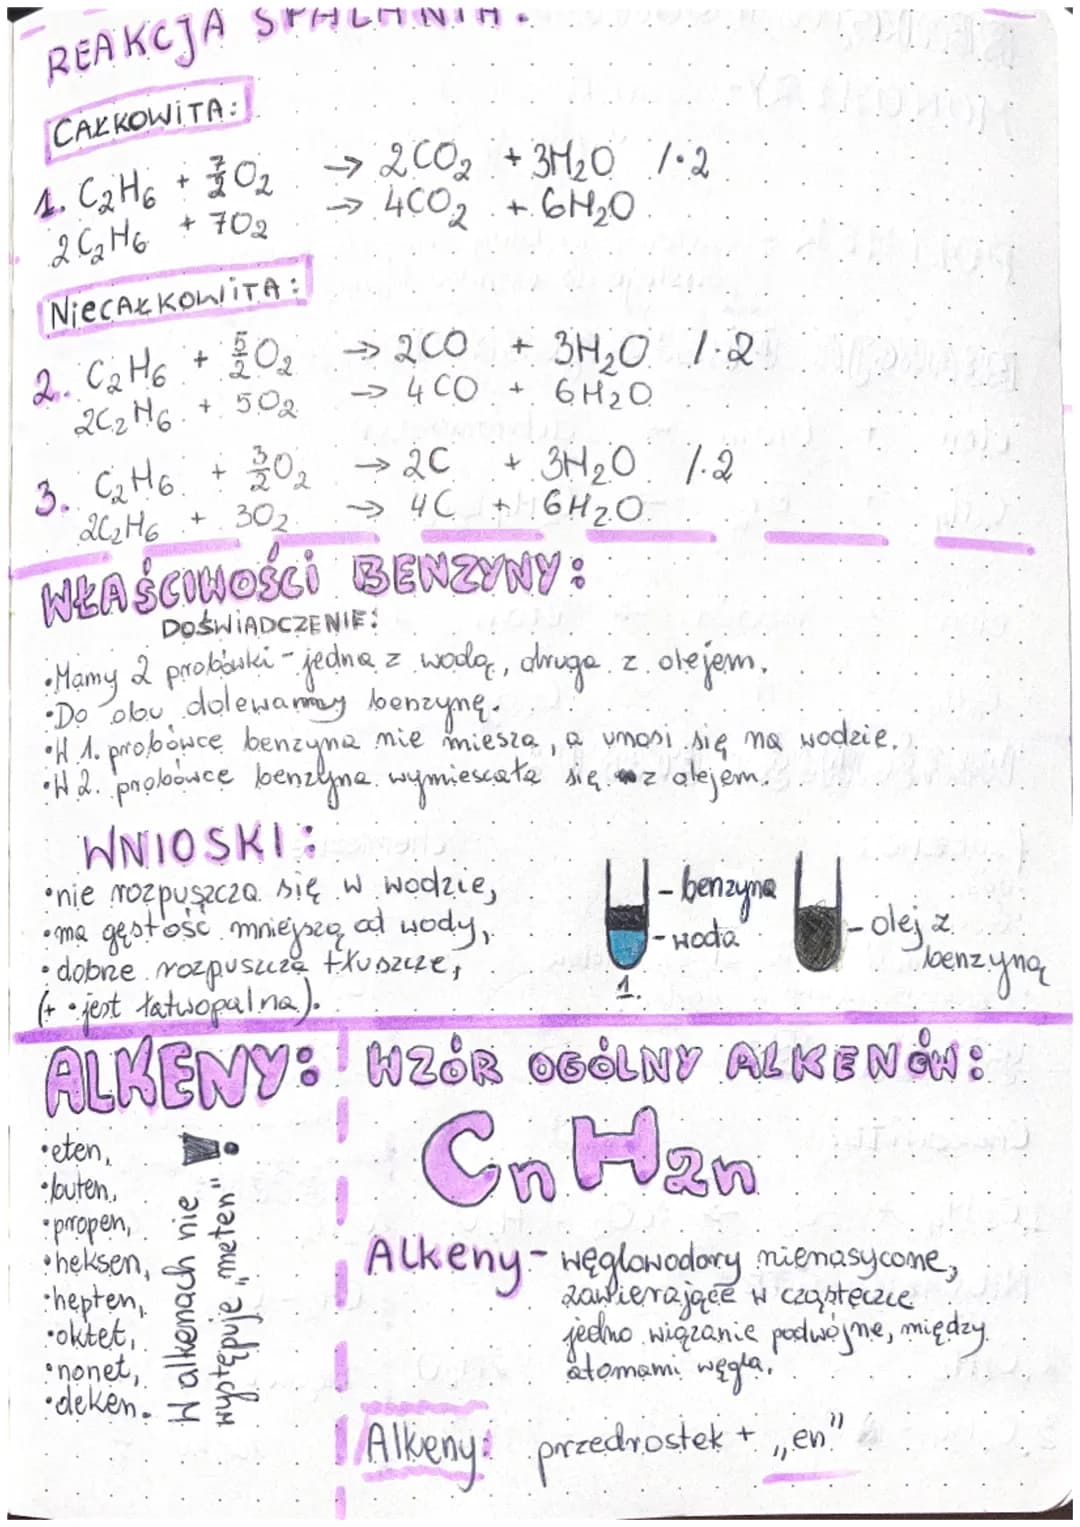 REAKCJA SPALANIA:
CAŁKOWITA:
1. C₂H₆ + 7/2 O₂ → 2CO₂ + 3H₂O /·2
2C₂H₆ + 7O₂ → 4CO₂ + 6H₂O
NIECAŁKOWITA:
2. C₂H₆ + 5/2 O₂ → 2CO + 3H₂O /·2
2C₂H₆ + 5O₂ → 4CO + 6H₂O
3. C₂H₆ + 3/2 O₂ → 2C + 3H₂O /·2
2C₂H₆ + 3O₂ → 4C + 6H₂O
WŁAŚCIWOŚCI BENZYNY:
DOŚWIADCZENIE:
•Mamy 2 probówki - jedna z wodą, druga z olejem.
•Do obu dolewamy benzynę.
•W 1. probówce benzyna nie miesza, a unosi się na wodzie.
•W 2. probówce benzyna wymieszała się z olejem.
WNIOSKI:
•nie rozpuszcza się w wodzie,
•ma gęstość mniejszą od wody,
•dobrze rozpuszcza tłuszcze,
(+ •jest łatwopalna).
- benzyna
- woda
1.
- olej z
benzyną
ALKENY:
•eten,
•buten,
•propen,
•heksen,
•hepten,
•oktet,
•nonet,
•deken.
W alkenach nie
występuje „meten" !
WZÓR OGÓLNY ALKENÓW:
CnH2n
Alkeny - węglowodory nienasycone,
zawierające w cząsteczce
jedno wiązanie podwójne, między
atomami węgla.
Alkeny: przedrostek + „en"